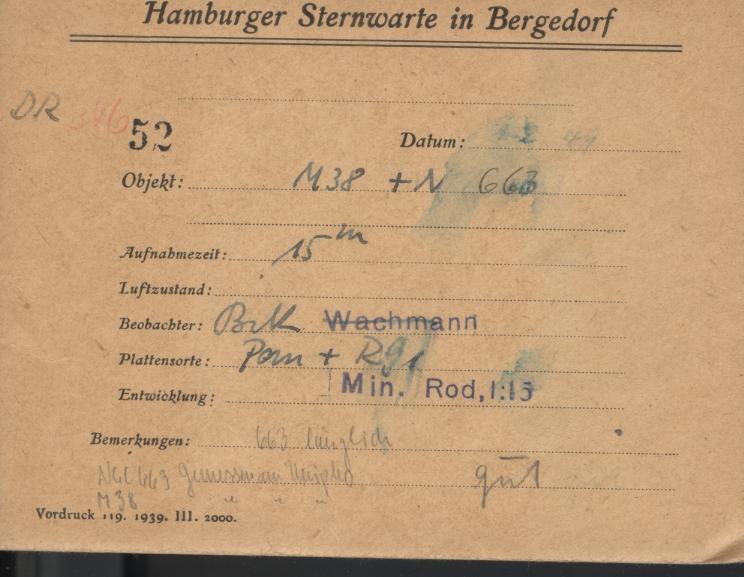 Hamburger Sternwarte in Bergedorf
DR 376
52 Datum:
Objekt: M38 + N 663
Aufnahmezeit: 15m
Luftzustand:
Beobachter: Wachmann
Plattensorte: Pan + RG1
Entwicklung: Min. Rod, 1:15
Bemerkungen: 663 länglich
NGC 663 gut
M 38 " " "
Vordruck 119. 1939. III. 2000.